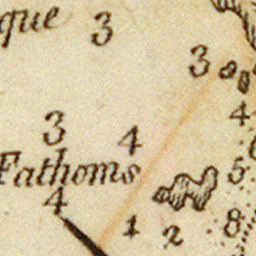 que 3
3
4
3 4
Fathoms 5
4
1 2 8